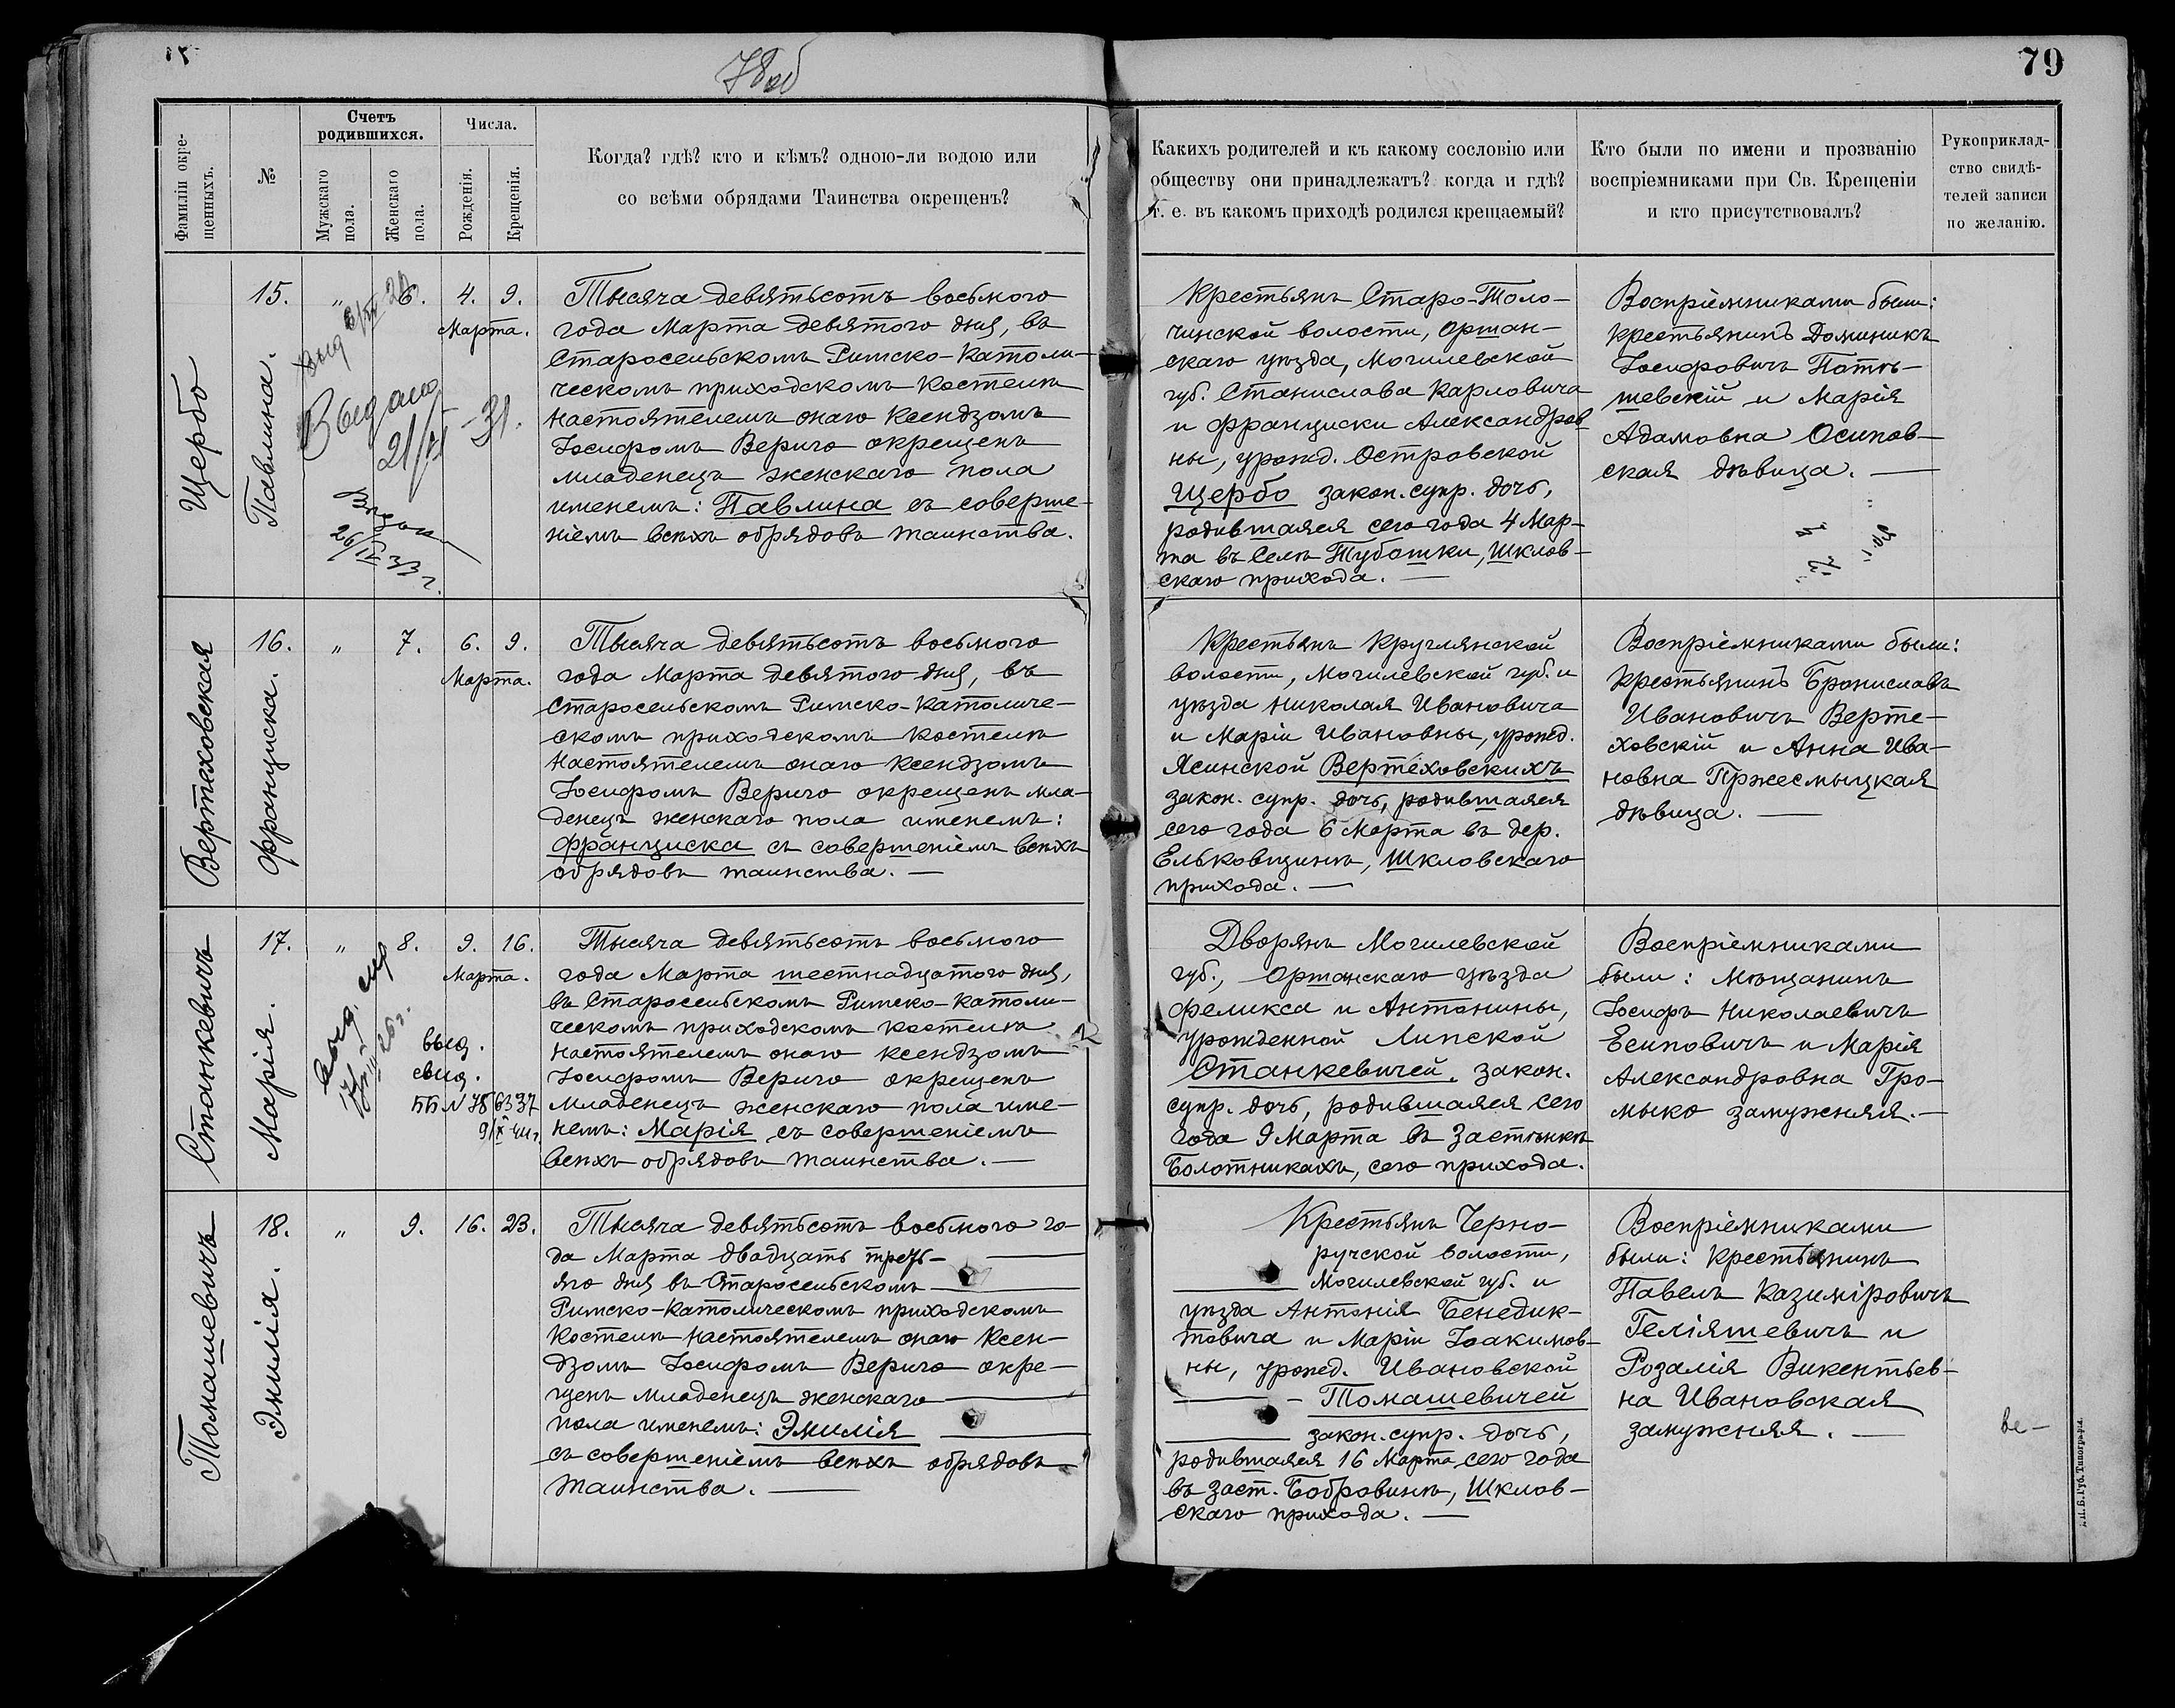 78об
79
Фамиліи окре-
щенныхъ.
№
Счетъ
родившихся.
Мужскаго
пола.
Женскаго
пола.
Числа.
Рожденія.
Крещенія.
Когда? гдѣ? кто и кѣмъ? одною-ли водою или
со всѣми обрядами Таинства окрещенъ?
Какихъ родителей и къ какому сословію или
обществу они принадлежатъ? когда и гдѣ?
т. е. въ какомъ приходѣ родился крещаемый?
Кто были по имени и прозванію
воспріемниками при Св. Крещеніи
и кто присутствовалъ?
Рукоприклад-
ство свидѣ-
телей записи
по желанію.
Щербо
15.
Павлина.
" 6. 4. 9.
Марта.
Выдано
21/VI - 31.
Выдан
26/IX 33 г.
Тысяча девятьсотъ восьмого
года Марта девятого дня, въ
Старосельскомъ Римско-Католи-
ческомъ приходскомъ костелѣ
настоятелемъ онаго Ксендзомъ
Іосифомъ Вериго окрещенъ
младенецъ женскаго пола
именемъ: Павлина съ соверше-
ніемъ всѣхъ обрядовъ таинства.
Крестьянъ Старо-Толо-
чинской волости, Оршан-
скаго уѣзда, Могилевской
губ. Станислава Карловича
и Франциски Александров
ны, урожд. Островской
Щербо закон. супр. дочь,
родившаяся сего года 4 Мар-
та въ селѣ Тубошки, Шклов-
скаго прихода. —
Воспріемниками были:
Крестьянинъ Доминикъ
Іосифовичъ Поть-
шевскій и Марія
Адамовна Осипов-
ская дѣвица. —
Вертѣховская
16.
Франциска.
" 7. 6. 9.
Марта.
Тысяча девятьсотъ восьмого
года Марта девятого дня, въ
Старосельскомъ Римско-Католиче-
скомъ приходскомъ костелѣ
настоятелемъ онаго Ксендзомъ
Іосифомъ Вериго окрещенъ мла-
денецъ женскаго пола именемъ:
Франциска съ совершеніемъ всѣхъ
обрядовъ таинства. —
Крестьянъ Круглянской
волости, Могилевской губ. и
уѣзда Николая Ивановича
и Маріи Ивановны, урожд.
Ясинской Вертеховскихъ
закон. супр. дочь, родившаяся
сего года 6 Марта въ дер.
Ельковщинѣ, Шкловскаго
прихода. —
Воспріемниками были:
Крестьянинъ Брониславъ
Ивановичъ Верте-
ховскій и Анна Ива-
новна Пржесмыцкая
дѣвица. —
Станкевичъ
17.
Марія.
" 8. 9. 16.
Марта.
выд.
свид.
ББ № 786337
9/X 44 г.
Тысяча девятьсотъ восьмого
года Марта шестнадцатого дня,
въ Старосельскомъ Римско-Католи-
ческомъ приходскомъ костелѣ
настоятелемъ онаго Ксендзомъ
Іосифомъ Вериго окрещенъ
младенецъ женскаго пола име-
немъ: Марія съ совершеніемъ
всѣхъ обрядовъ таинства. —
Дворянъ Могилевской
губ., Оршанскаго уѣзда
Феликса и Антонины,
урожденной Липской
Станкевичей, закон.
супр. дочь, родившаяся сего
года 9 Марта въ застѣнкѣ
Болотникахъ, сего прихода.
Воспріемниками
были: Мѣщанинъ
Іосифъ Николаевичъ
Есиповичъ и Марія
Александровна Гро-
мыко замужняя. —
Томашевичъ
18.
Эмилія.
" 9. 16. 23.
Тысяча девятьсотъ восьмого го-
да Марта двадцать треть-
яго дня въ Старосельскомъ
Римско-Католическомъ приходскомъ
костелѣ настоятелемъ онаго Ксен-
дзомъ Іосифомъ Вериго окре-
щенъ младенецъ женскаго
пола именемъ: Эмилія
съ совершеніемъ всѣхъ обрядовъ
таинства. —
Крестьянъ Черно-
ручской волости,
Могилевской губ. и
уѣзда Антонія Бенедик-
товича и Маріи Іоакимов-
ны, урожд. Ивановской
— Томашевичей
закон. супр. дочь,
родившаяся 16 Марта сего года
въ заст. Бобровинѣ, Шклов-
скаго прихода. —
Воспріемниками
были: Крестьянинъ
Павелъ Казиміровичъ
Геліяшевичъ и
Розалія Викентьев-
на Ивановская
замужняя. —
ве-